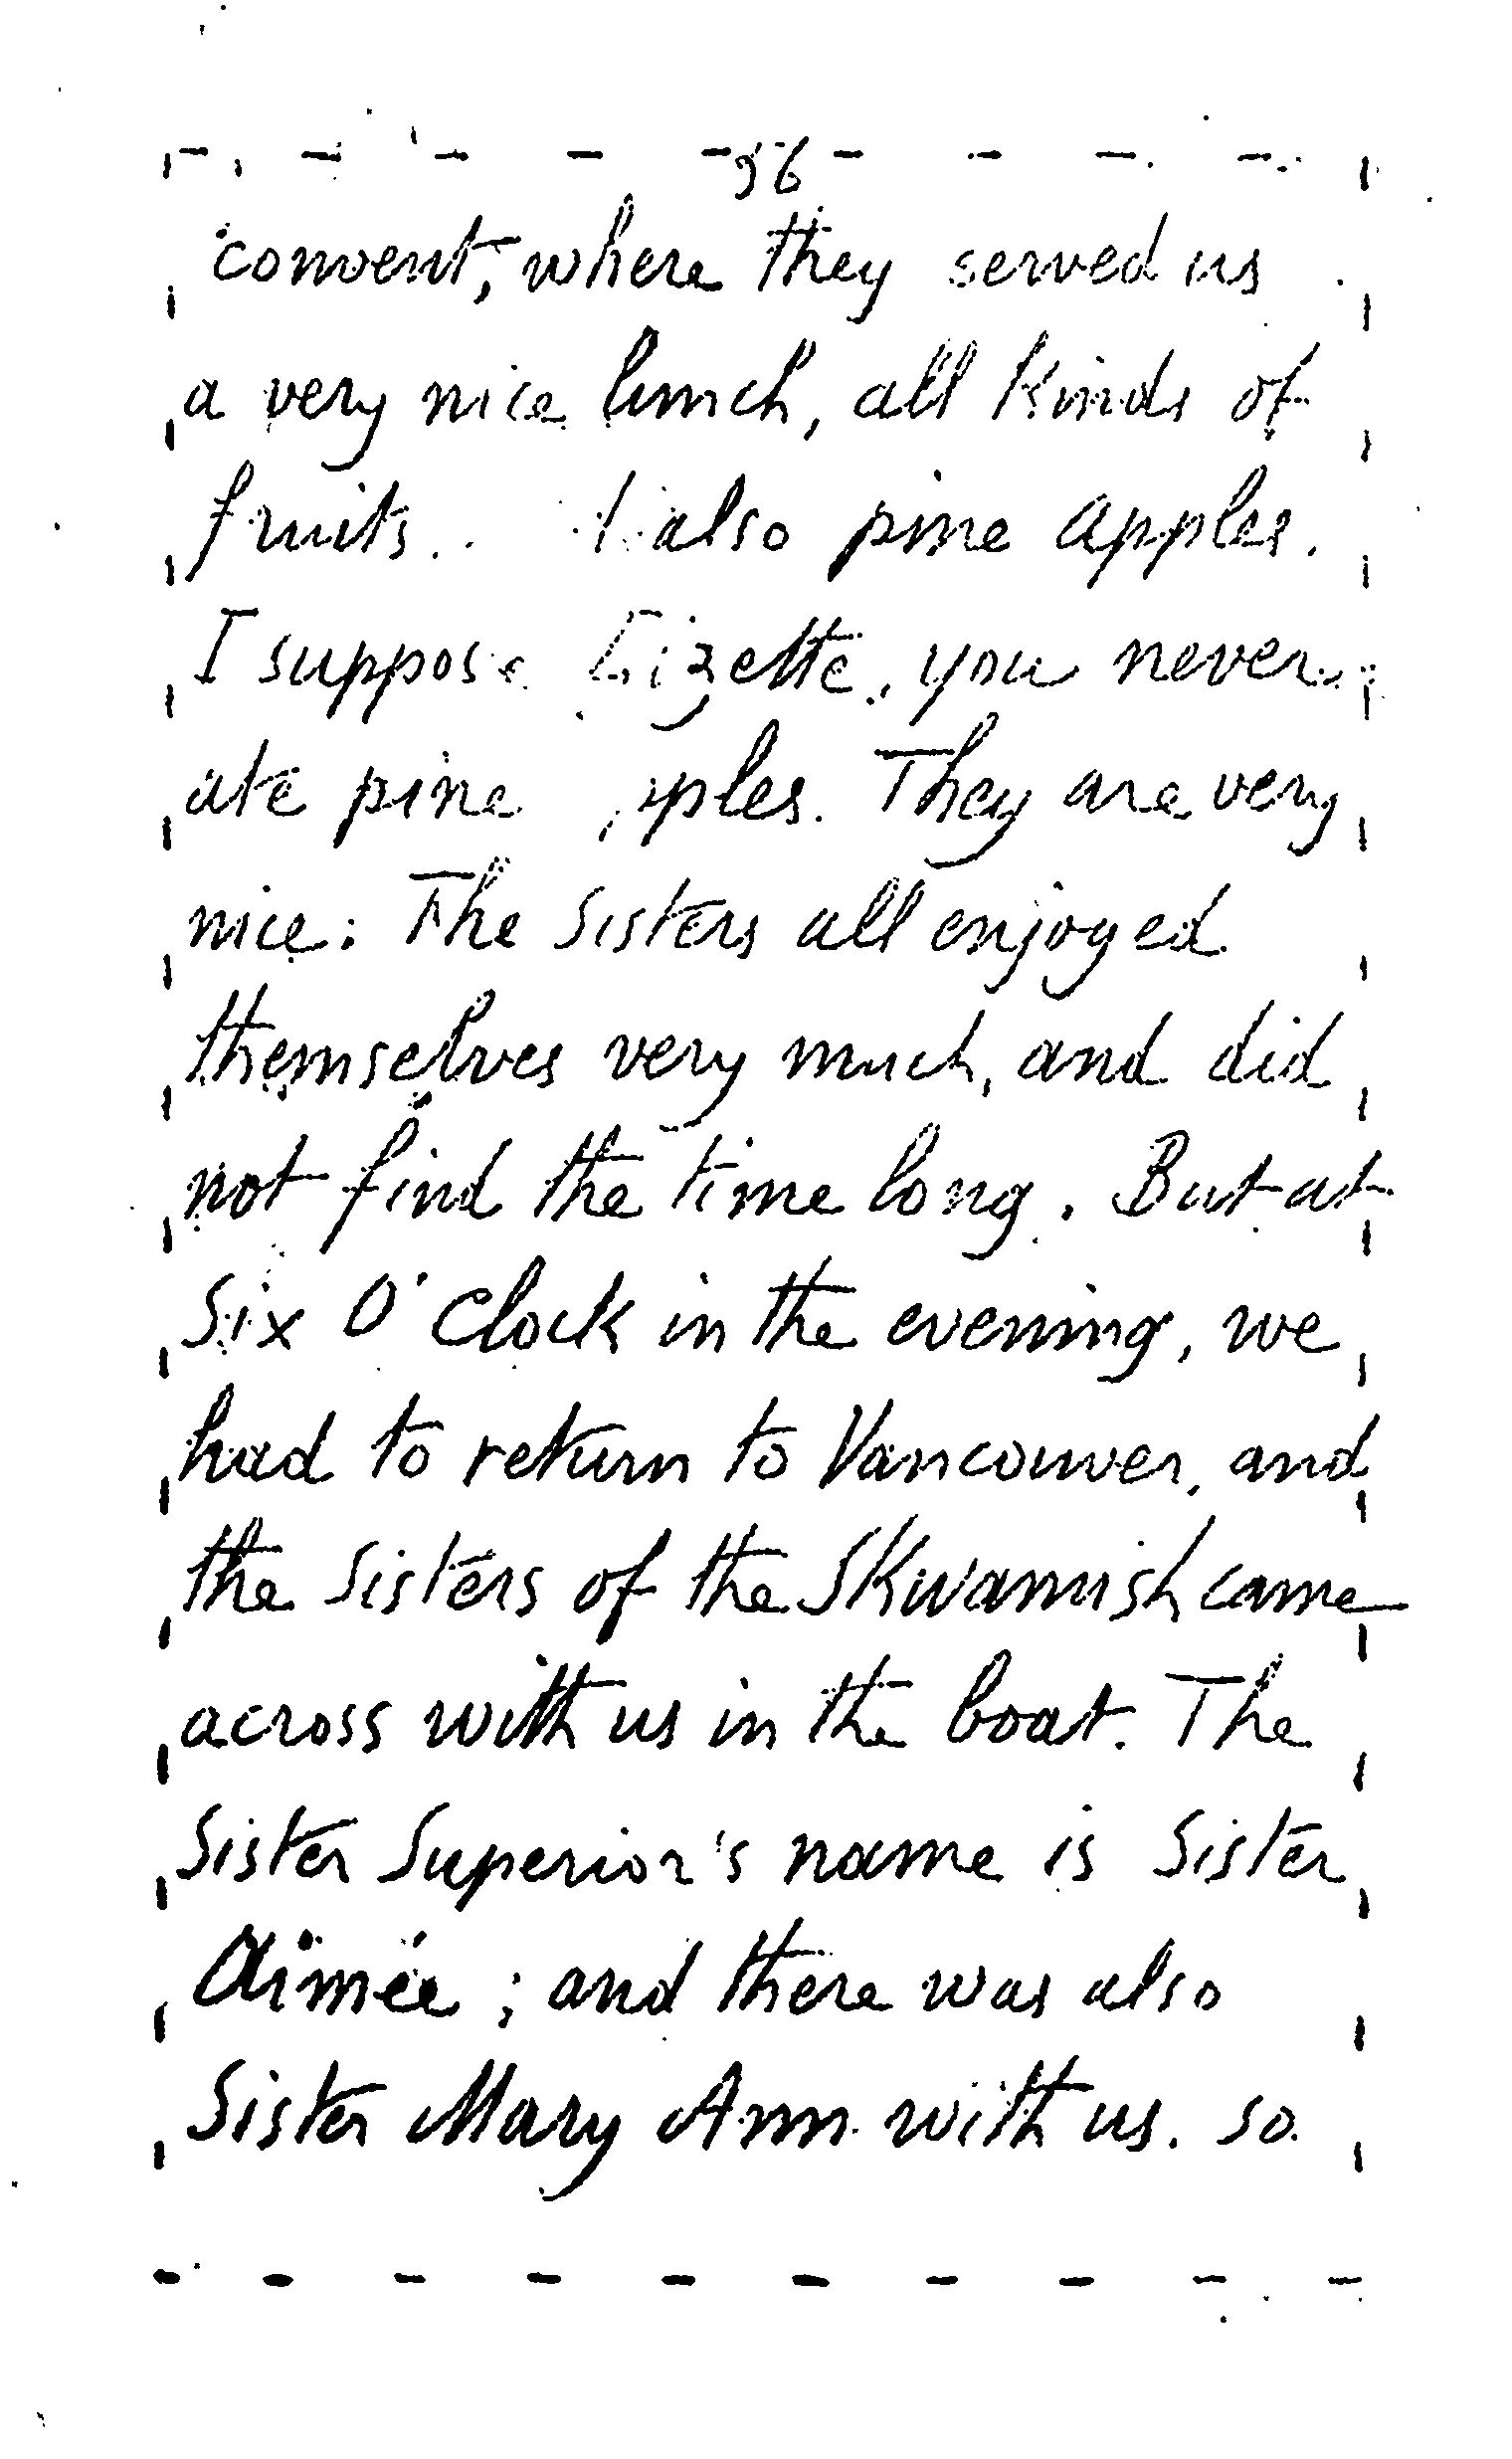 36
convent, where they served us
a very nice lunch, all kinds of
fruits. also pine apples.
I suppose Lizette, you never
ate pine apples. They are very
nice. The Sisters all enjoyed
themselves very much, and did
not find the time long. But at
Six O'Clock in the evening, we
had to return to Vancouver, and
the Sisters of the SKwamish came
across with us in the boat. The
Sister Superior's name is Sister
Aimée; and there was also
Sister Mary Ann with us. so